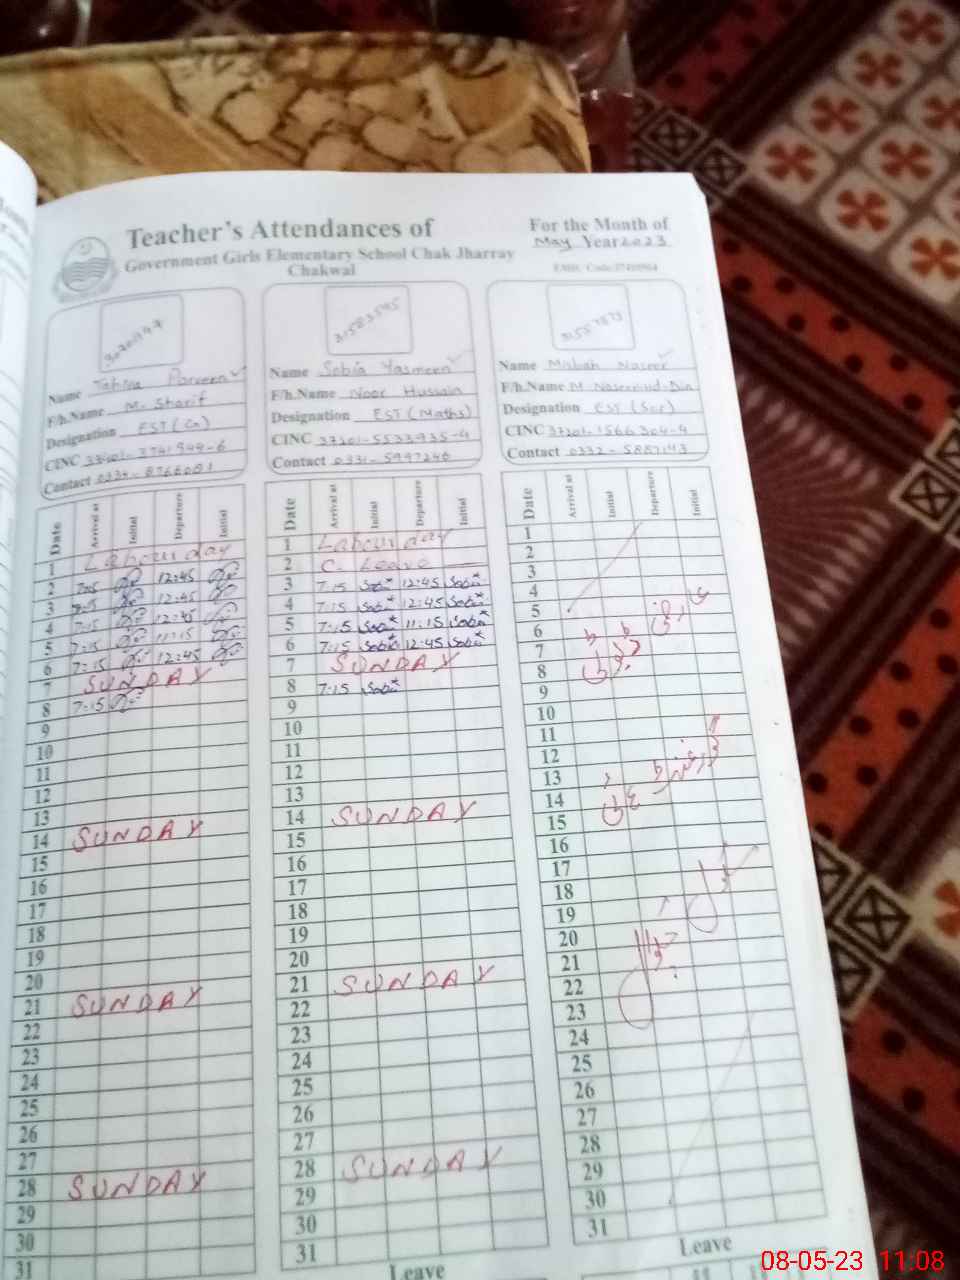 Teacher's Attendances of
Government Girls Elementary School Chak Jharray
Chakwal
For the Month of
May Year 2023
31583545
Name Tahira Parveen
F/h.Name M. Sharif
Designation EST (Gn)
CINC
Contact
Name Sobia Yasmeen
F/h.Name Noor Hussain
Designation EST (Maths)
CINC 37201-5533935-4
Contact 0331-5997246
Name Misbah Naseer
F/h.Name M Naseer-ud-Din
Designation EST (Sci)
CINC 37201-1566304-4
Contact 0332-5887143
Date Arrival at Initial Departure Initial
1 Labour day
2 7:15 12:45
3 7:15 12:45
4 7:15 12:45
5 7:15 11:15
6 7:15 12:45
7 SUNDAY
8 7:15
9
10
11
12
13
14 SUNDAY
15
16
17
18
19
20
21 SUNDAY
22
23
24
25
26
27
28 SUNDAY
29
30
31
Date Arrival at Initial Departure Initial
1 Labour day
2 C. Leave
3 7:15 Sobia 12:45 Sobia
4 7:15 Sobia 12:45 Sobia
5 7:15 Sobia 11:15 Sobia
6 7:15 Sobia 12:45 Sobia
7 SUNDAY
8 7:15 Sobia
9
10
11
12
13
14 SUNDAY
15
16
17
18
19
20
21 SUNDAY
22
23
24
25
26
27
28 SUNDAY
29
30
31
Leave
Date Arrival at Initial Departure Initial
1
2
3
4
5
6
7
8
9
10
11
12
13
14
15
16
17
18
19
20
21
22
23
24
25
26
27
28
29
30
31
Leave
08-05-23 11:08